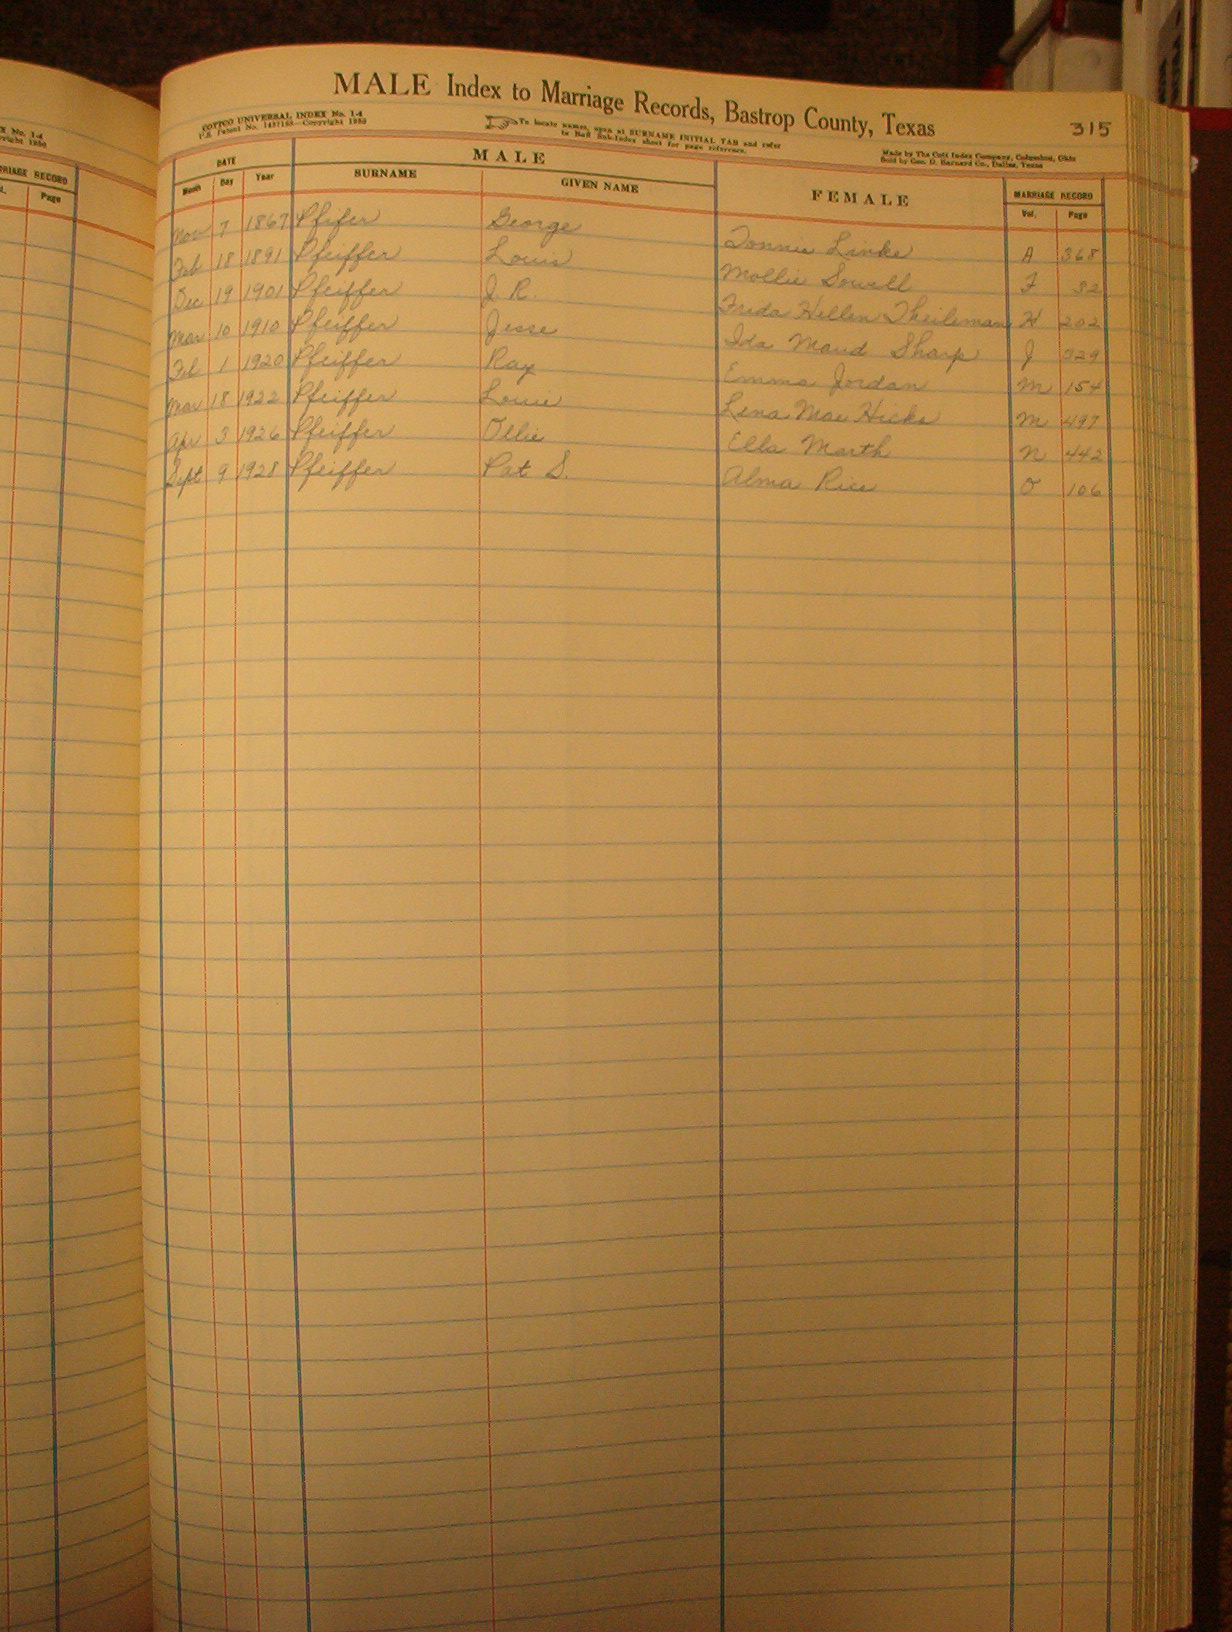 MALE Index to Marriage Records, Bastrop County, Texas
315
COTTCO UNIVERSAL INDEX No. 1-4
U.S. Patent No. 1437169—Copyright 1930
To locate names, open at SURNAME INITIAL TAB and refer
to Buff Sub-Index sheet for page reference.
Made by The Cott Index Company, Columbus, Ohio
Sold by Geo. D. Barnard Co., Dallas, Texas
DATE MALE FEMALE MARRIAGE RECORD
Month Day Year SURNAME GIVEN NAME Vol. Page
Nov 7 1867 Pfifer George Tonnie Linke A 368
Feb 18 1891 Pfeiffer Louis Mollie Sowell F 32
Dec 19 1901 Pfeiffer J R. Frida Hellen Theileman H 202
Mar 10 1910 Pfeiffer Jesse Ida Maud Sharp J 329
Feb 1 1920 Pfeiffer Ray Emma Jordan M 154
Mar 18 1922 Pfeiffer Louie Lena Mae Hicks M 497
Apr 3 1926 Pfeiffer Ollie Ella Marth N 442
Sept 9 1928 Pfeiffer Pat S. Alma Rice O 106
X No. 1-4
MARRIAGE RECORD
Page